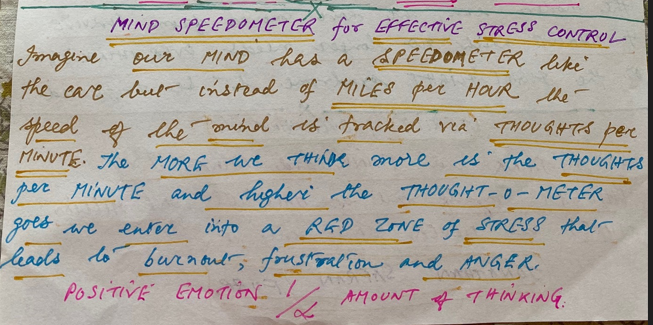 MIND SPEEDOMETER for EFFECTIVE STRESS CONTROL
Imagine our MIND has a SPEEDOMETER like
the car but instead of MILES per HOUR the
speed of the mind is tracked via THOUGHTS per
MINUTE. The MORE we THINK more is the THOUGHTS
per MINUTE and higher the THOUGHT-O-METER
goes we enter into a RED ZONE of STRESS that
leads to burnout, frustration and ANGER.
POSITIVE EMOTION 1/α AMOUNT of THINKING.